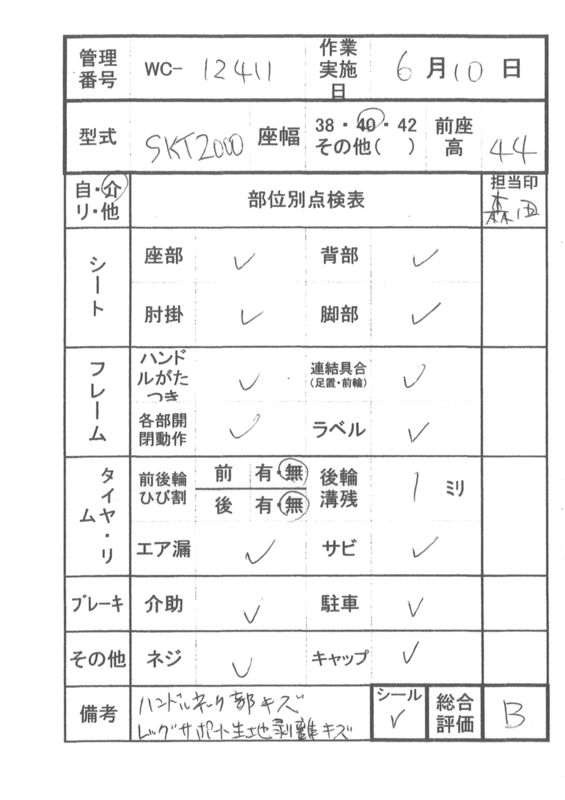 管理番号 WC- 12411 作業実施日 6月10日
型式 SKT2000 座幅 38・40・42 その他( ) 前座高 44
自・介 リ・他 部位別点検表 担当印 森田
シート 座部 ✓ 背部 ✓
肘掛 ✓ 脚部 ✓
フレーム ハンドルがたつき ✓ 連結具合(足置・前輪) ✓
各部開閉動作 ✓ ラベル ✓
タイヤ・リム 前後輪ひび割 前 有・無 後輪溝残 1 ミリ
後 有・無
エア漏 ✓ サビ ✓
ブレーキ 介助 ✓ 駐車 ✓
その他 ネジ ✓ キャップ ✓
備考 ハンドルネック部キズ シール ✓ 総合評価 B
レッグサポート生地剥離キズ